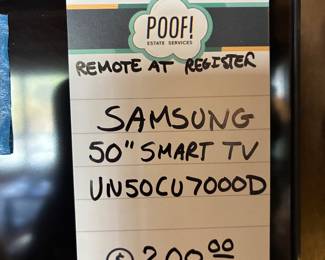 POOF!
ESTATE SERVICES
REMOTE AT REGISTER
SAMSUNG
50" SMART TV
UN50CU7000D
$ 200.00